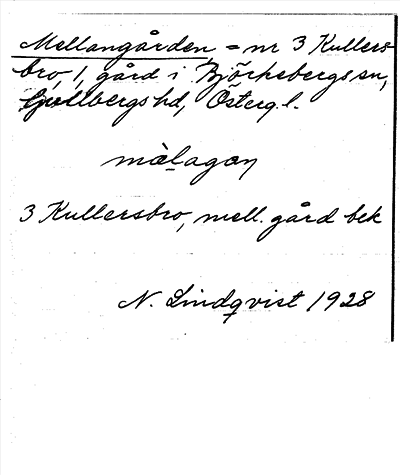 Mellangården = nr 3 Kullers-
bro, 1, gård i Björkebergs sn,
Gullbergs hd, Österg. l.
màlagaṇ
3 Kullersbro, mell. gård bek
N. Lindqvist 1928